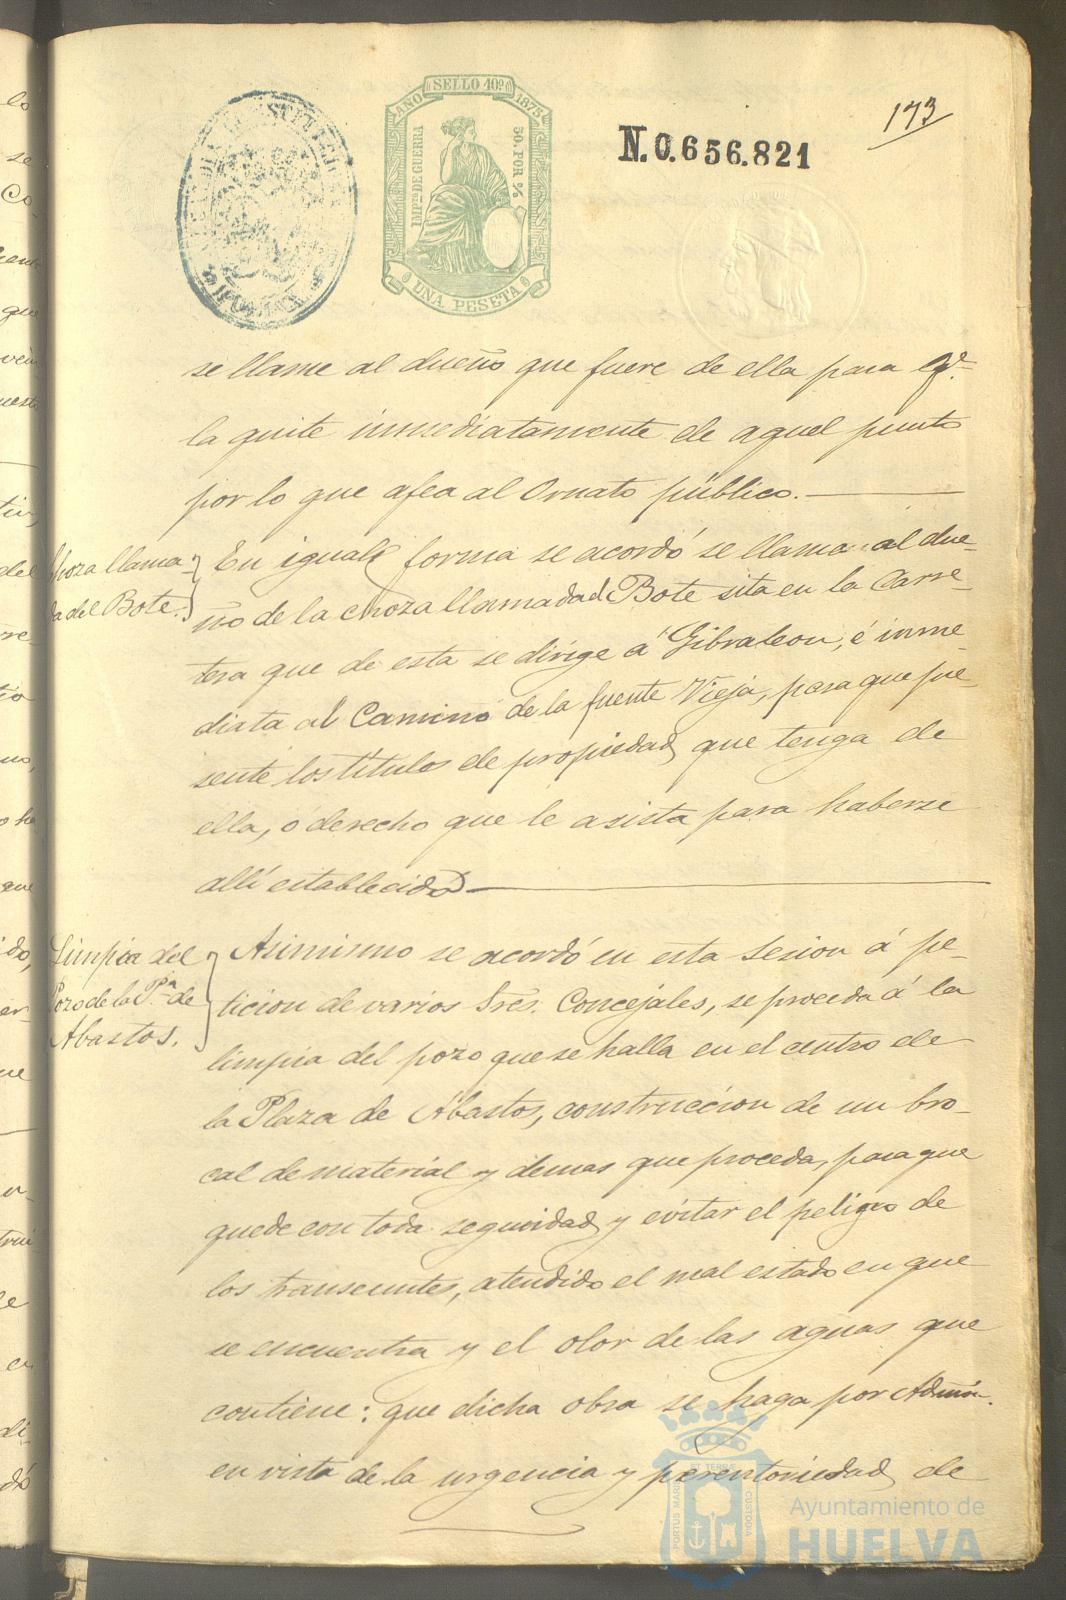 AÑO SELLO 10º 1878
IMPTO DE GUERRA
50. POR %
UNA PESETA
N.0.656.821
173
se llame al dueño que fuere de ella para qe.
la quite inmediatamente de aquel punto
por lo que afea al Ornato público.
Choza llama-
da del Bote.
En igual forma se acordó se llama al due-
ño de la choza llamada del Bote sita en la Carre-
tera que de esta se dirige á Gibraleon, é inme-
diata al Camino de la fuente Vieja, para que pre-
sente los titulos de propiedad que tenga de
ella, ó derecho que le asista para haberse
allí establecido
Limpia del
Pozo de la Pza. de
Abastos.
Asimismo se acordó en esta sesion á pe-
ticion de varios Sres. Concejales, se proceda á la
limpia del pozo que se halla en el centro de
la Plaza de Abastos, construccion de un bro-
cal de material y demas que proceda, para que
quede con toda seguridad y evitar el peligro de
los transeuntes, atendido el mal estado en que
se encuentra y el olor de las aguas que
contiene: que dicha obra se haga por Admón.
en vista de la urgencia y perentoriedad de
PORTUS MARIS ET TERRE CUSTODIA
Ayuntamiento de
HUELVA